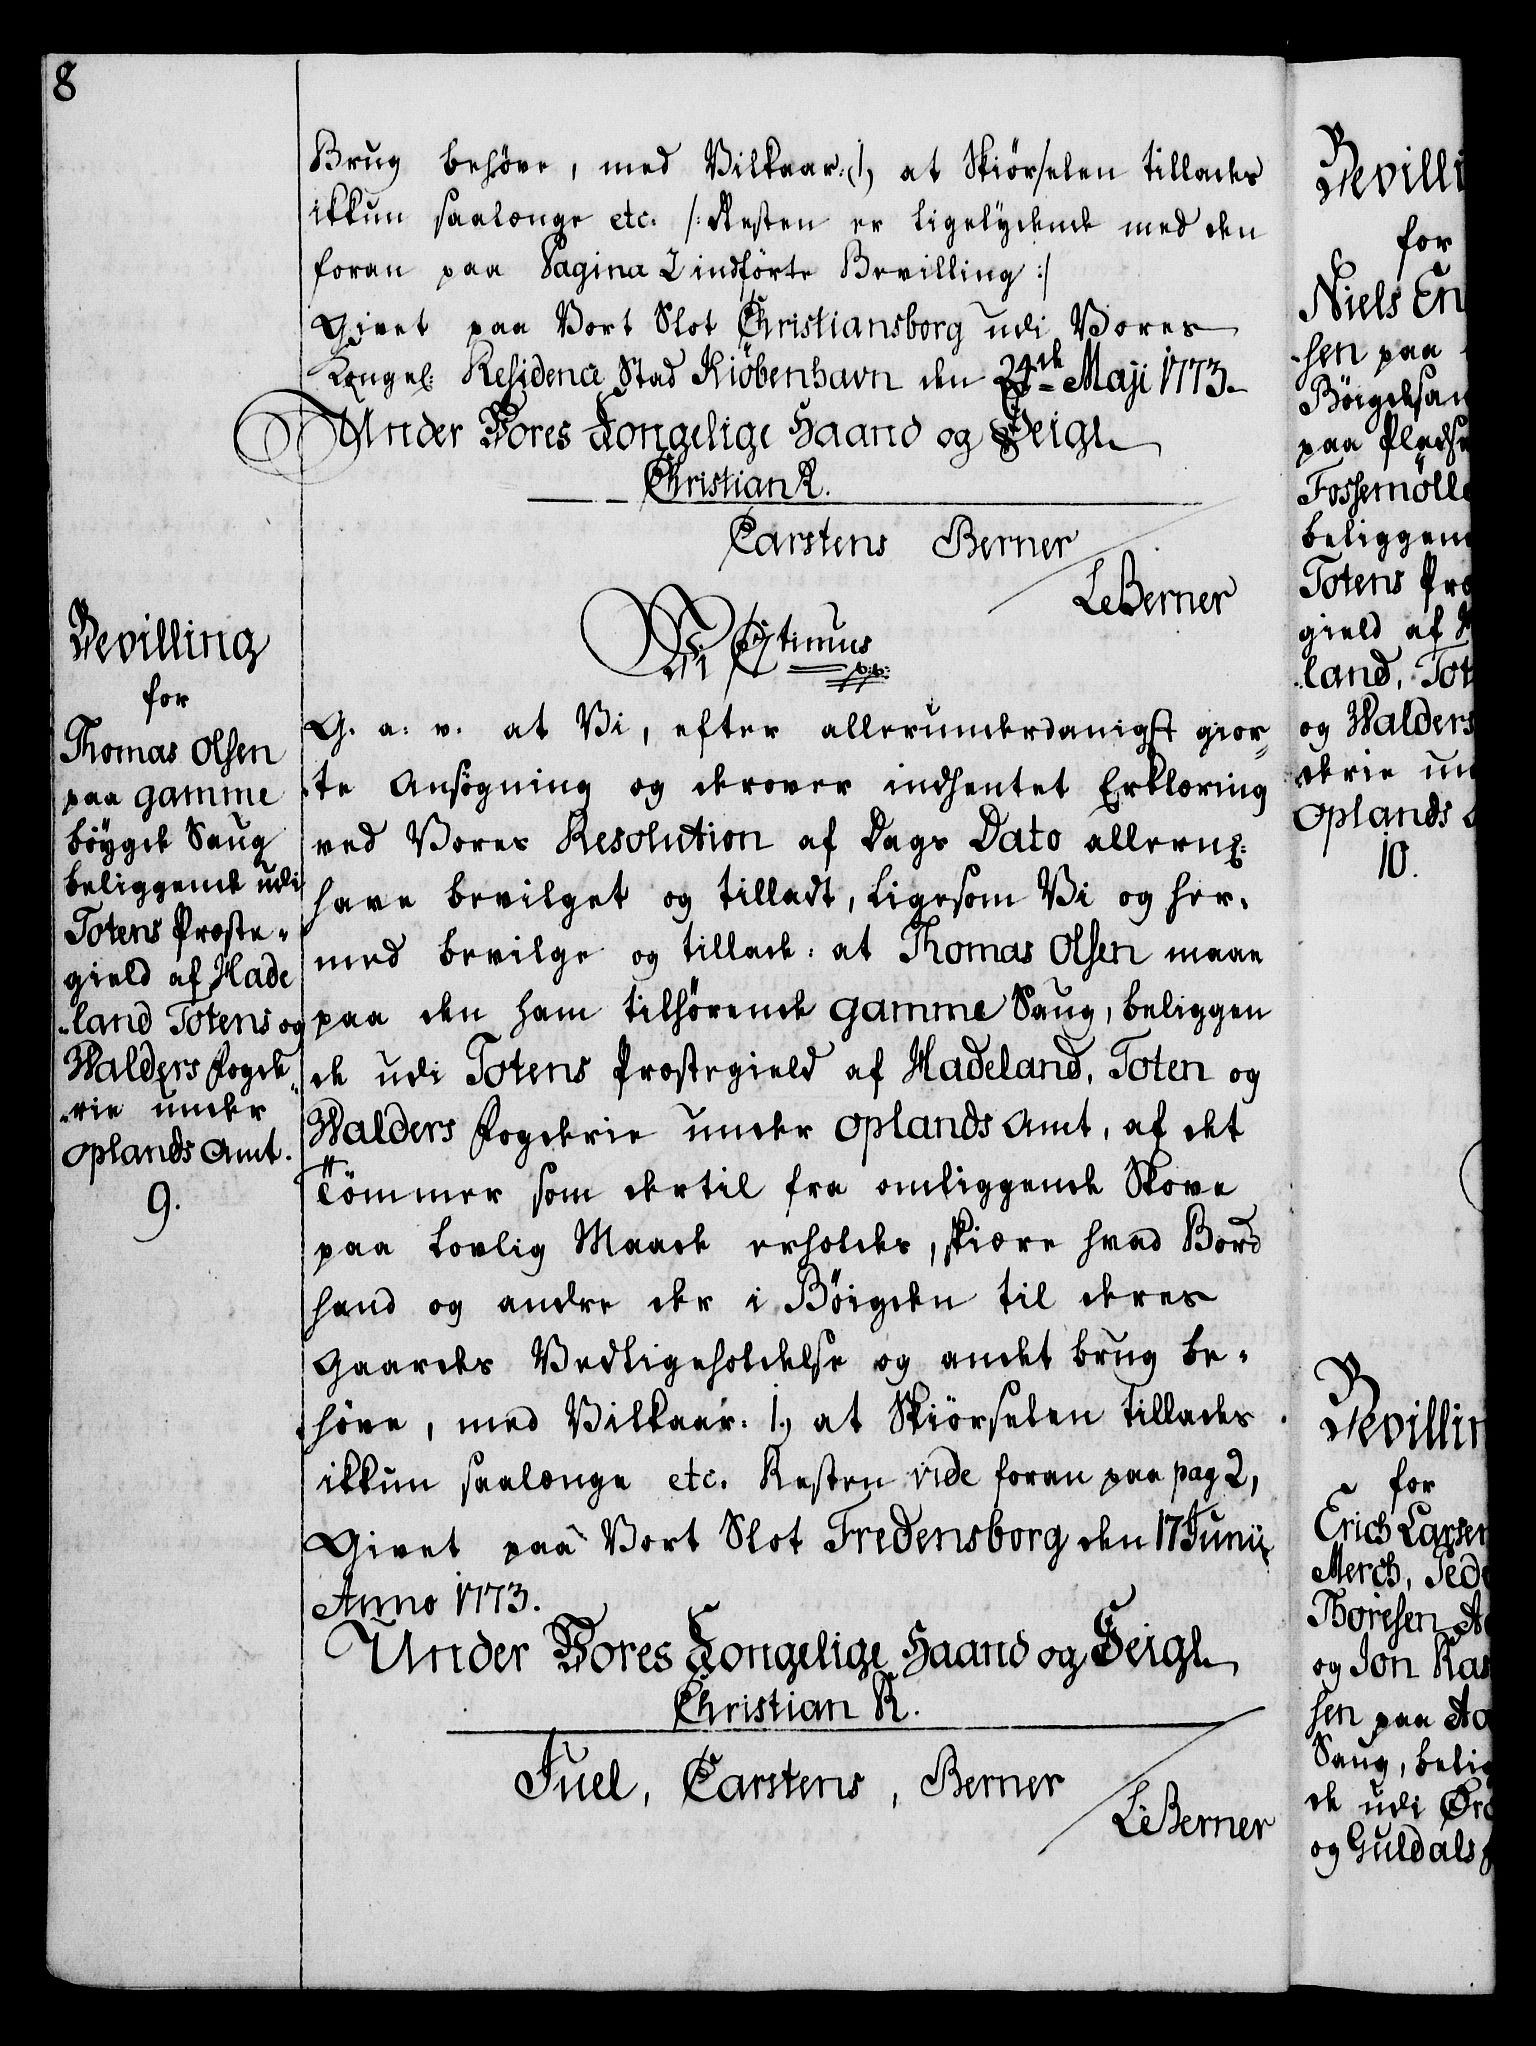 8
Brug behöve, med Vilkaar: 1, at Skiörselen tillades
ikkun saalænge etc. /: Resten er ligelydende med den
foran paa Pagina 2 indförte Bevilling :/
Givet paa Vort Slot Christiansborg udi Vores
Kongel: Residence Stad Kiöbenhavn den 24de Maji 1773.
Under Vores Kongelige Haand og Seigl.
Christian R.
Carstens Berner
LeBerner
Bevilling
for
Thomas Olsen
paa gamme
böygde Saug
beliggende udi
Totens Præste-
gield af Hade
-land Totens og
Walders Fogde
-rie under
Oplands Amt.
9.
Wi C 7timus
p.p.
G. a: v. at Vi, efter allerunderdanigst gior-
-te Ansögning og derover indhentet Erklæring
ved Vores Resolution af Dags Dato allern:
have bevilget og tilladt, ligesom Vi og her-
med bevilge og tillade: at Thomas Olsen maae
paa den ham tilhörende gamme Saug, beliggen
de udi Totens Præstegield af Hadeland, Toten og
Walders Fogderie under Oplands Amt, af det
Tömmer som dertil fra omliggende Skove
paa lovlig Maade erholdes, skiære hvad Bord
hand og andre der i Böigden til deres
Gaardes Vedligeholdelse og andet brug be-
höve, med Vilkaar: 1, at Skiörselen tillades
ikkun saalænge etc. Resten vide foran paa pag 2,
Givet paa Vort Slot Fredensborg den 17 Junii
Anno 1773.
Under Vores Kongelige Haand og Seigl.
Christian R.
Juel, Carstens, Berner
LeBerner
Bevilli
for
Niels En
-sen paa
Böigdesau
paa Pladse
Fossemölle
beliggend
Totens Præ
gield af H
-land, Tot
og Walders
derie un
Oplands A
10.
Bevillin
for
Erich Larsen
Merch, Pede
Thoresen A
og Jon Ras
sen paa Aa
Saug, belig
de udi Ørc
og Guldals F